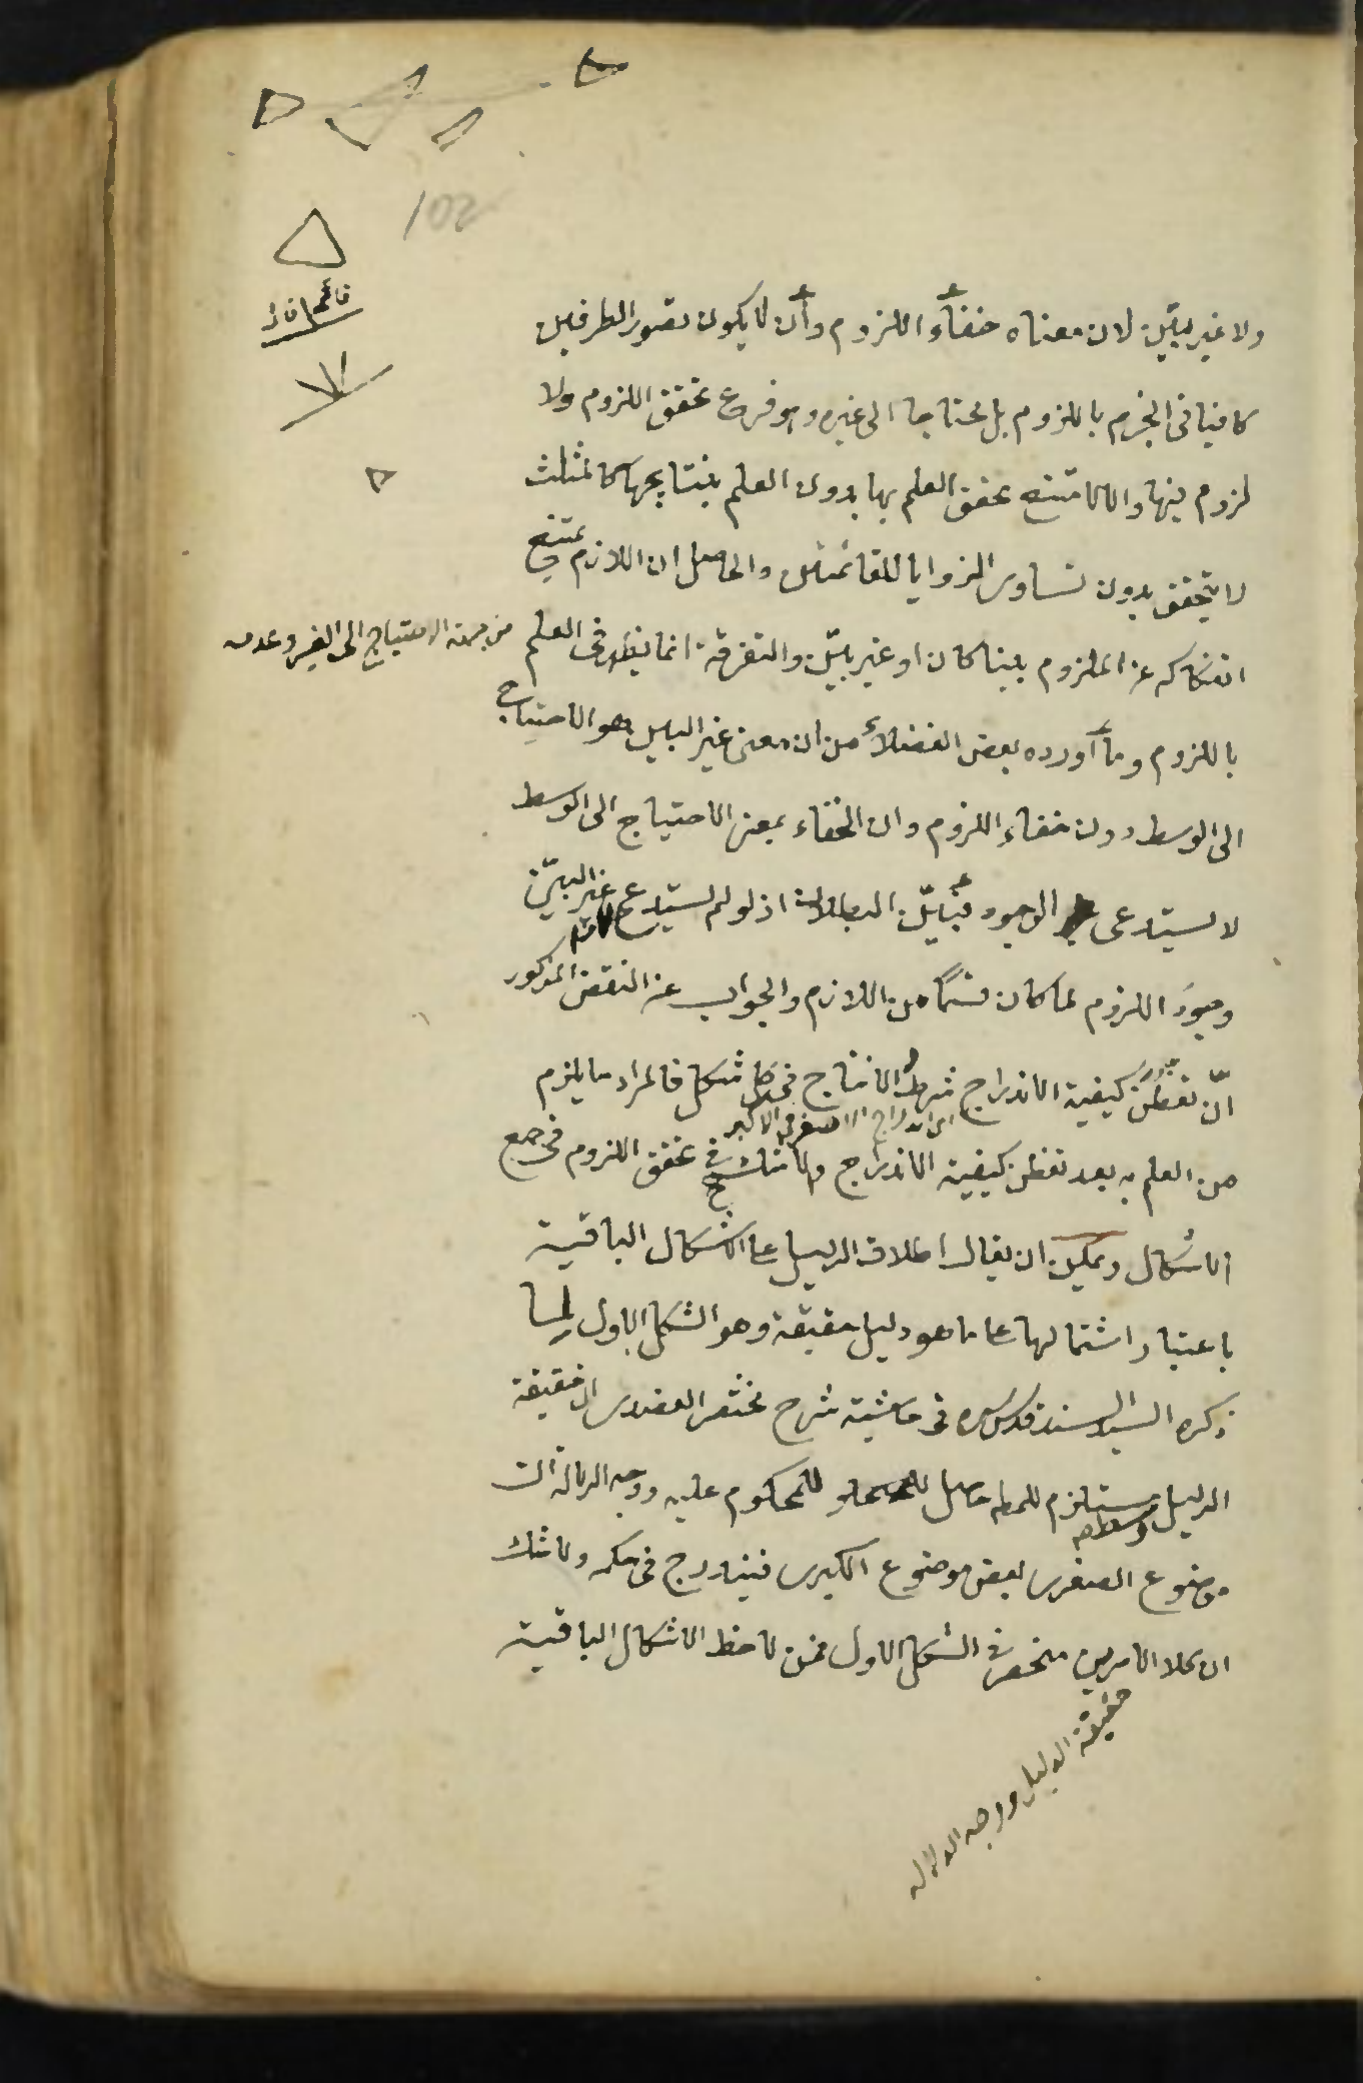 102
قائمتان
ولا غير بيّن لان معناه خفاء اللزوم وان لا يكون تصور الطرفين
كافيا في الجزم باللزوم بل محتاجا الى غيره وهو فرع تحقق اللزوم ولا
لزوم فيها والا لامتنع تحقق العلم بها بدون العلم بنتايجها كالمثلث
لا يتحقق بدون تساوى الزوايا للقائمتين والحاصل ان اللازم يمتنع
انفكاكه عن الملزوم بينا كان او غير بيّن والتفرقة انما يظهر في العلم
من جهة الاحتياج الى الغير وعدمه
باللزوم وما اورده بعض الفضلاء من ان معنى غير البين هو الاحتياج
الى الوسط دون خفاء اللزوم وان الخفاء بمعنى الاحتياج الى الوسط
لا يستدعى الوجود فبيّن البطلان اذ لو لم يستدع غير البيّن
وجود اللزوم لما كان قسما من اللازم والجواب عن النقض المذكور
انّ تفطن كيفية الاندراج شرط الانتاج في كل شكل فالمراد ما يلزم
اى اندراج الاصغر في الاكبر
من العلم به بعد تفطن كيفية الاندراج ولا شك في تحقق اللزوم في جميع
الاشكال ويمكن ان يقال اطلاق الدليل على الاشكال الباقية
باعتبار اشتمالها على ما هو دليل حقيقة وهو الشكل الاول لما
ذكره السيد السند قدس سره في حاشية شرح مختصر العضدى ان حقيقة
الدليل وسط مستلزم للمط حاصل للمحكوم عليه ووجه الدلالة ان
موضوع الصغرى بعض موضوع الكبرى فيندرج في حكمه ولا شك
ان كلا الامرين منحصر في الشكل الاول فمن لاحظ الاشكال الباقية
حقيقة الدليل ووجه الدلالة